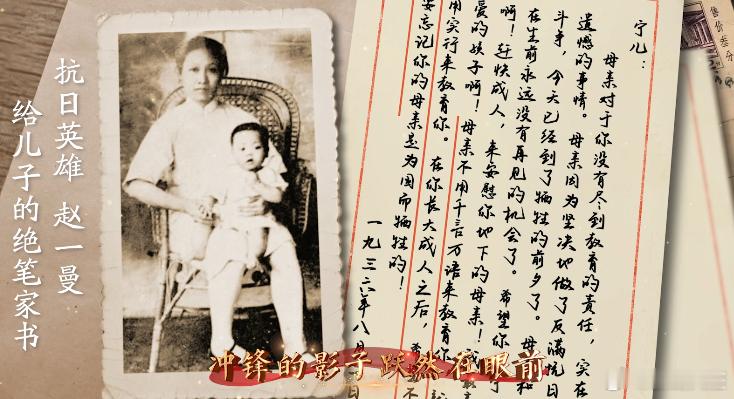 抗日英雄 赵一曼
给儿子的绝笔家书
宁儿：
母亲对于你没有尽到教育的责任，实在
遗憾的事情。母亲因为坚决地做了反满抗日
斗争，今天已经到了牺牲的前夕了。母 和
在生前永远没有再见的机会了。希望你
啊！赶快成人，来安慰你地下的母亲！
爱的孩子啊！母亲不用千言万语来教育你
用实行来教育你。在你长大成人之后，希
要忘记你的母亲是为国而牺牲的！
一九三六年八月 日
售价叁分
冲锋的影子跃然在眼前